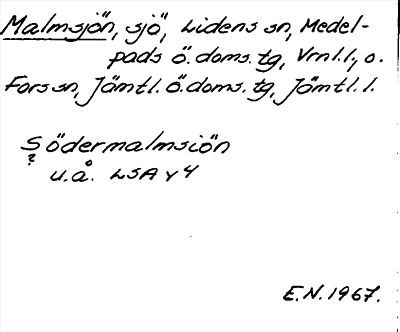 Malmsjön, sjö, Lidens sn, Medel-
pads Ö. doms. tg, Vrnl.l., o.
Fors sn, Jämtl. Ö. doms. tg, Jämtl. l.
Södermalmsiön
?
u.å. LSA Y 4
E.N. 1967.